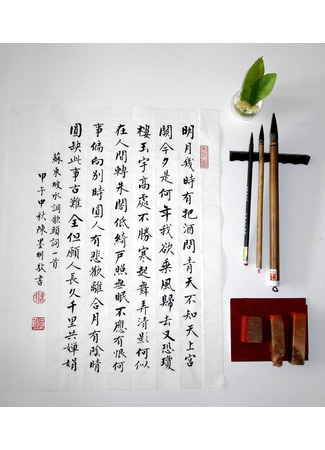 明月幾時有把酒問青天不知天上宮
闕今夕是何年我欲乘風歸去又恐瓊
樓玉宇高處不勝寒起舞弄清影何似
在人間轉朱閣低綺戶照無眠不應有恨何
事偏向別時圓人有悲歡離合月有陰晴
圓缺此事古難全但願人長久千里共嬋娟
蘇東坡水調歌頭詞一首
甲午中秋陳墨明敬書